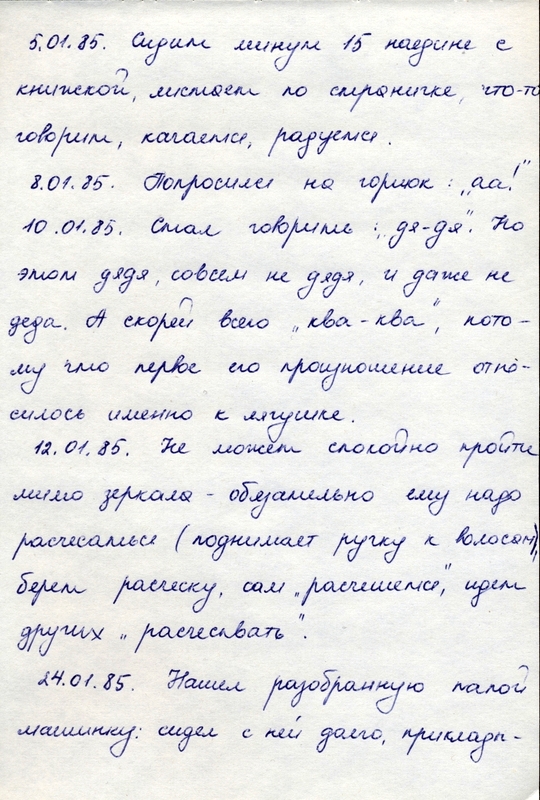 5.01.85. Сидит минут 15 наедине с
книжкой, листает по страничке, что-то
говорит, качается, радуется.
8.01.85. Попросился на горшок: „аа!"
10.01.85. Стал говорить: „дя-дя". Но
этот дядя, совсем не дядя, и даже не
деда. А скорей всего „ква-ква", пото-
му что первое его произношение отно-
силось именно к лягушке.
12.01.85. Не может спокойно пройти
мимо зеркала - обязательно ему надо
расчесаться (поднимает ручку к волосам),
берет расческу, сам „расчешется", идет
других „расчесывать".
24.01.85. Нашел разобранную папой
машинку: сидел с ней долго, прикладн-